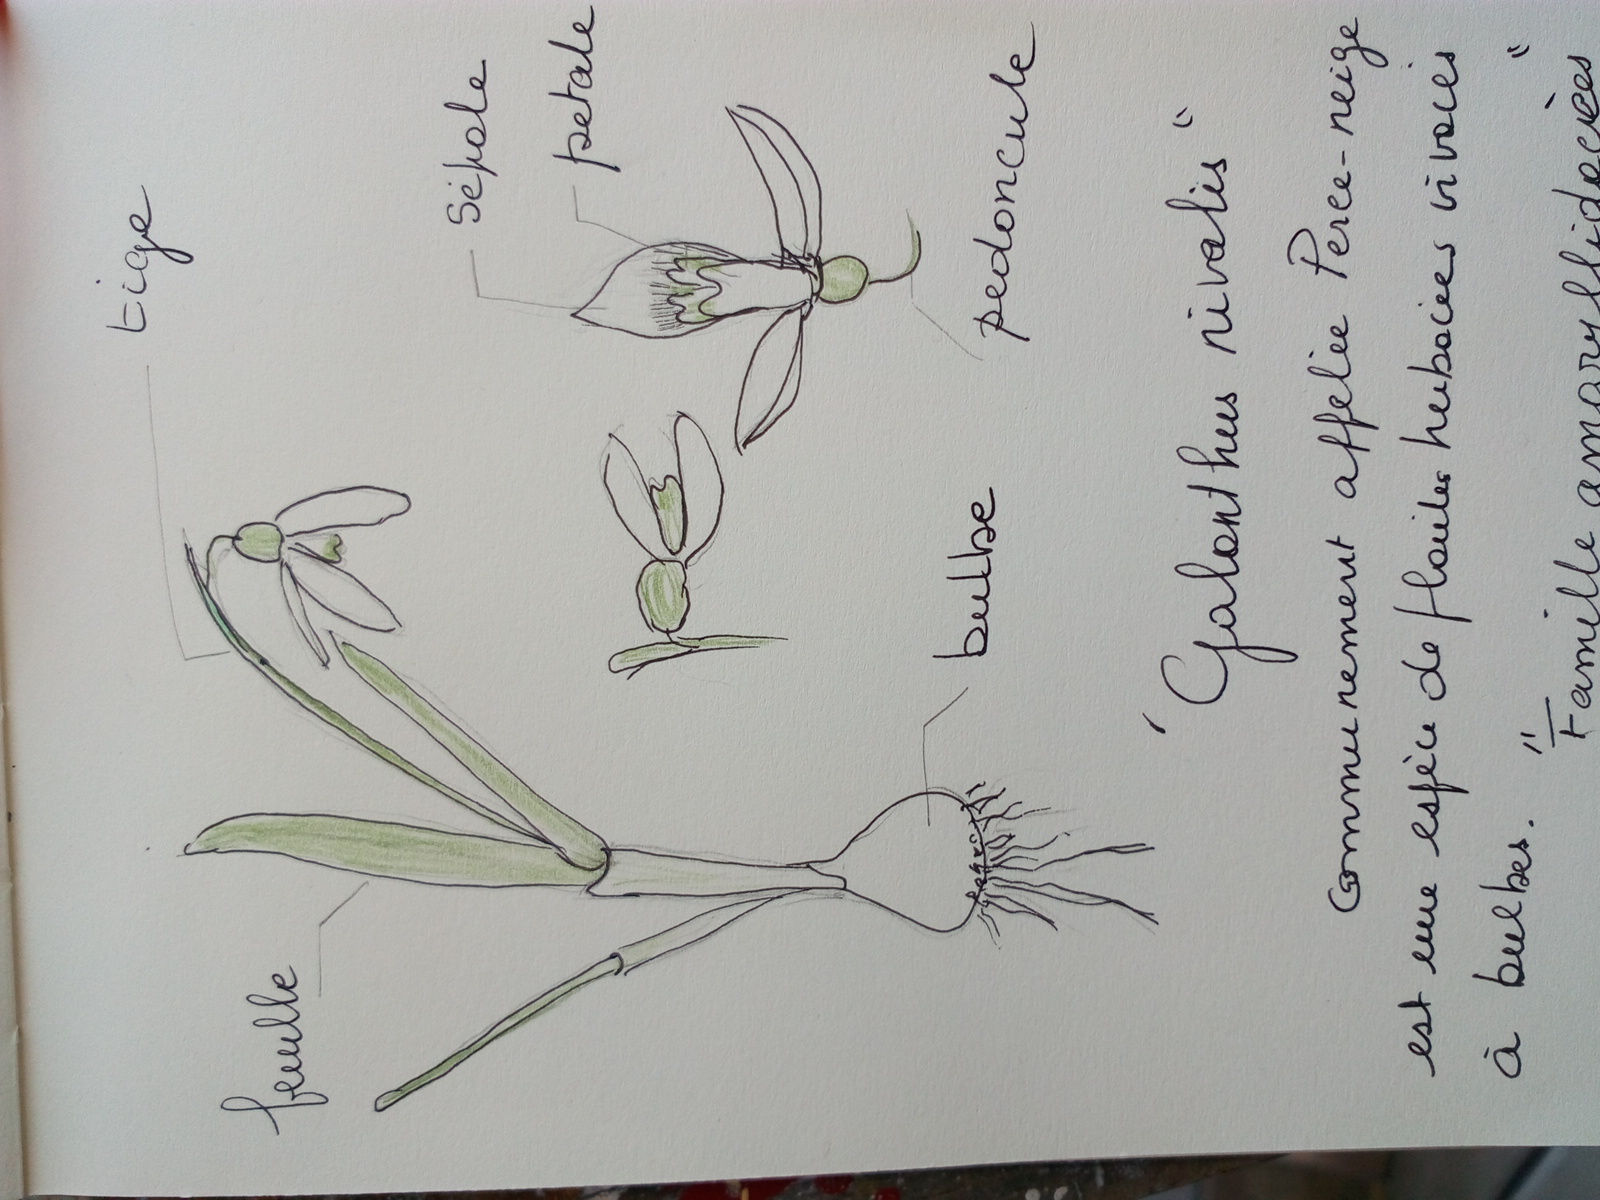 tige
feuille
Sépale
petale
pedoncule
bulbe
"Galanthus nivalis"
communement appelée Perce-neige
est une espèce de plantes herbacées vivaces
à bulbes.
"Famille amaryllidacées"